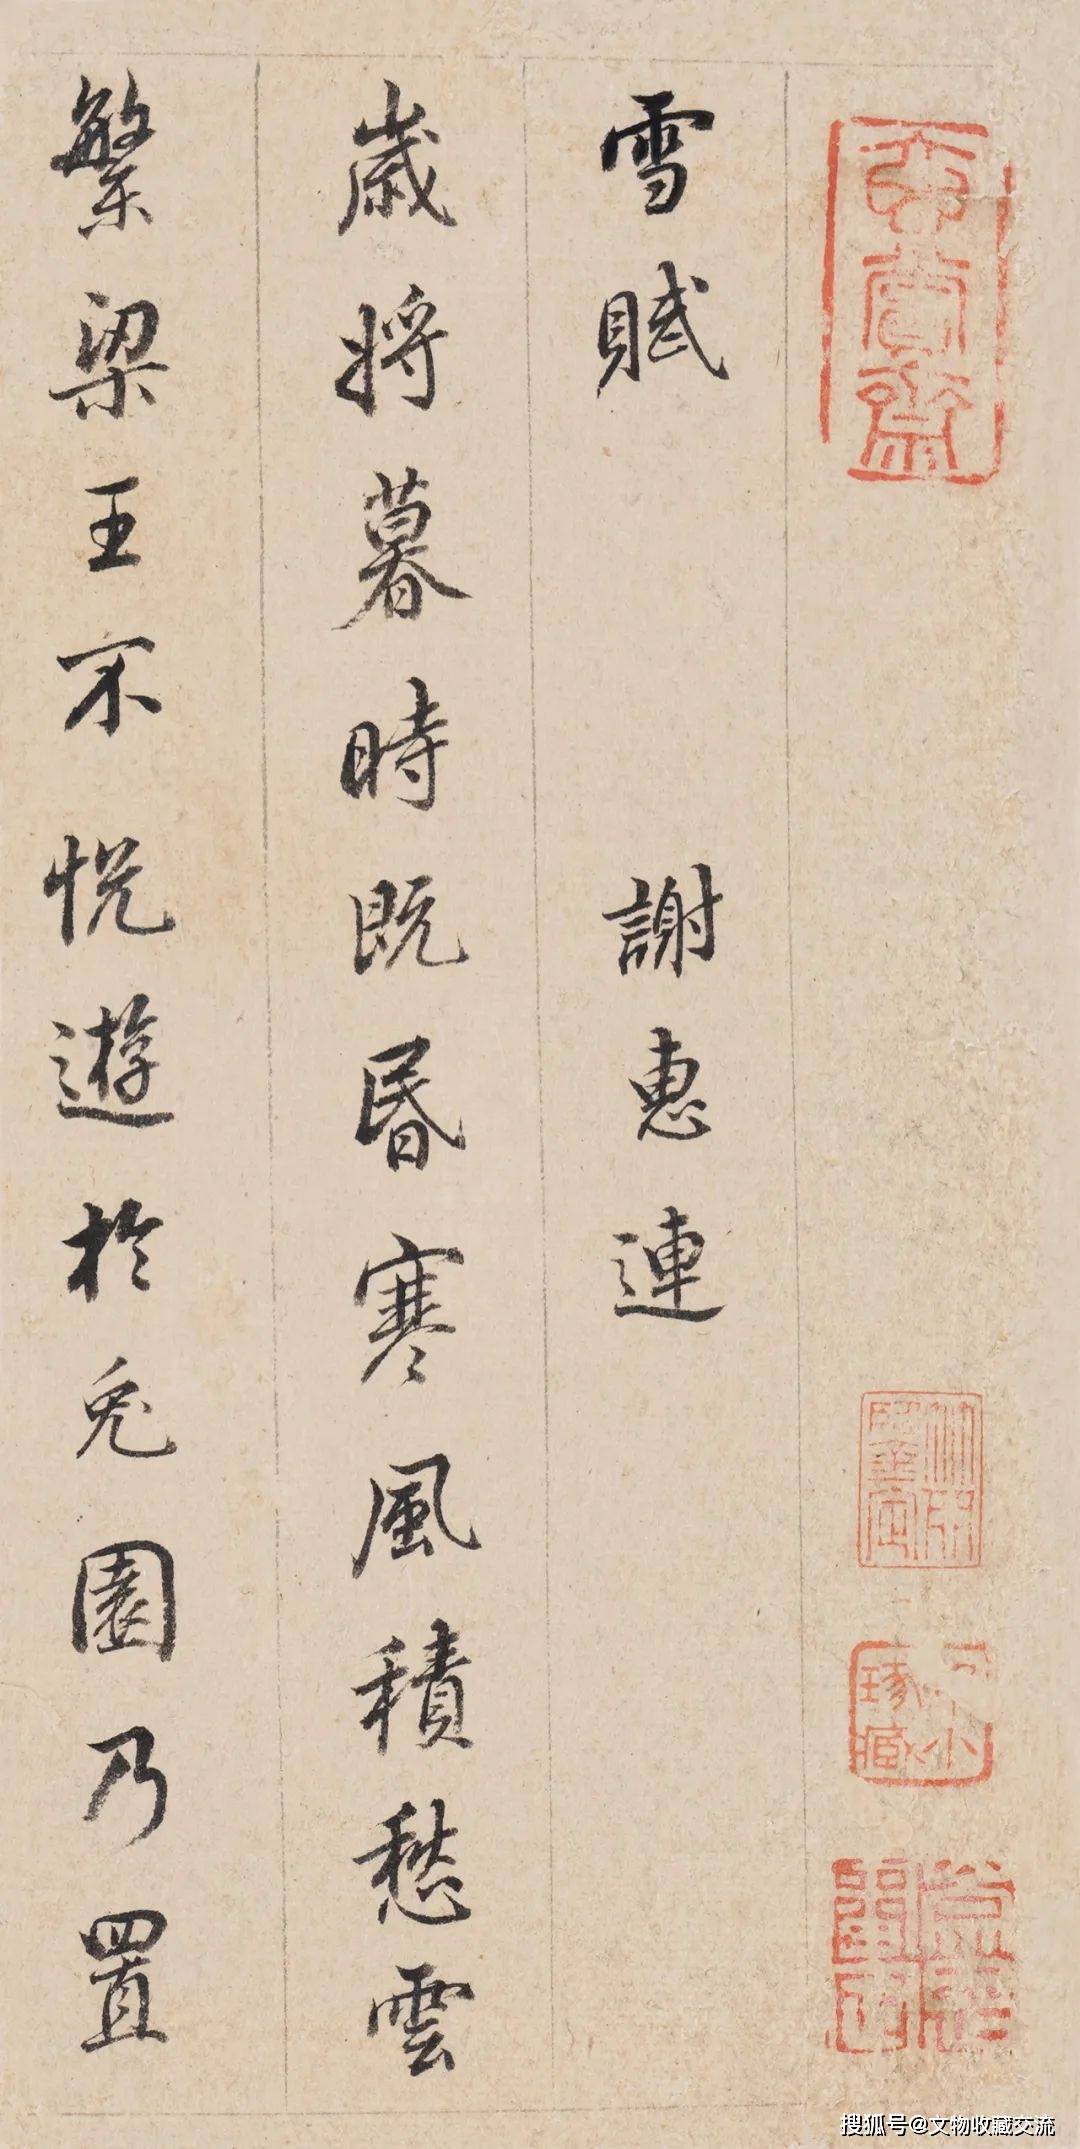 雪賦 謝惠連
歲將暮時既昏寒風積愁雲
繁梁王不悅遊於兔園乃置
搜狐号@文物收藏交流